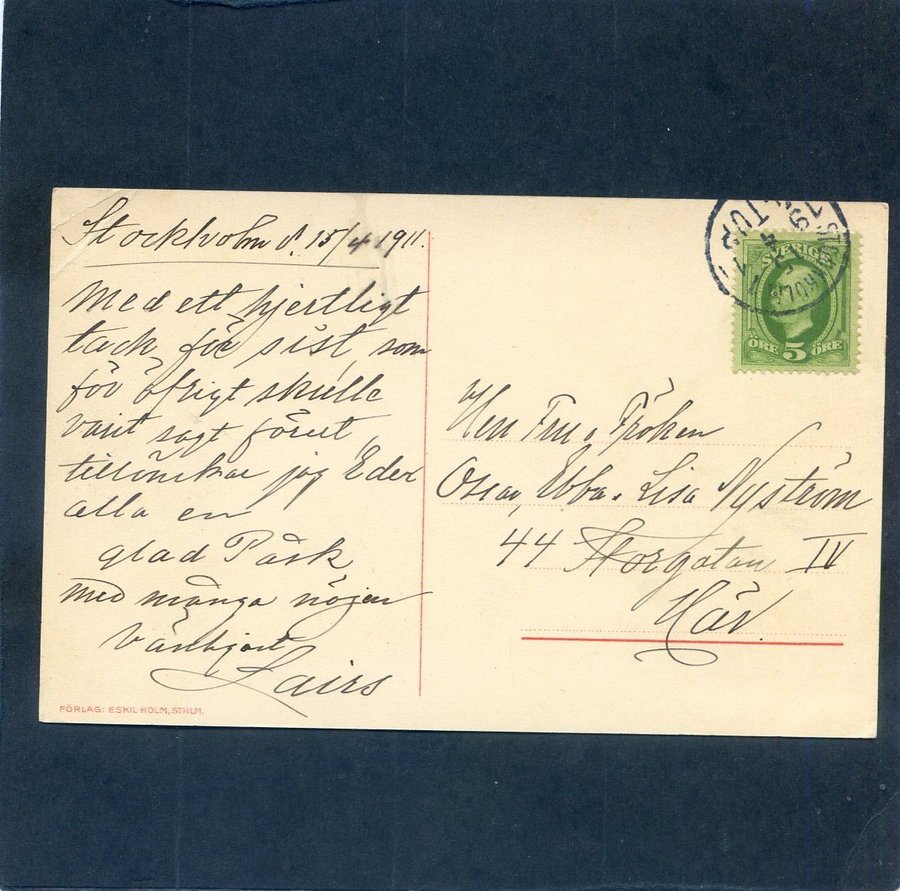 Stockholm d. 15/4 1911.
Med ett hjertligt
tack för sist, som
för öfrigt skulle
varit sagt förut
tillönskar jag Eder
alla en
glad Påsk
med många nöjen
Vänhjort
Lairs
FÖRLAG: ESKIL HOLM, STHLM.
SVERIGE
ÖRE 5 ÖRE
Herr Fru o Fröken
Oscar, Ebba o Lisa Nyström
44 Storgatan IV
Här.